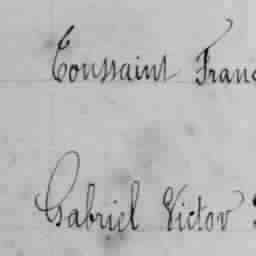 Toussaint Franç
Gabriel Victor